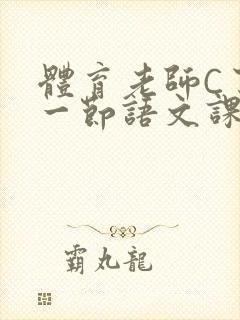 體育老師C
一節語文課
霸丸龍